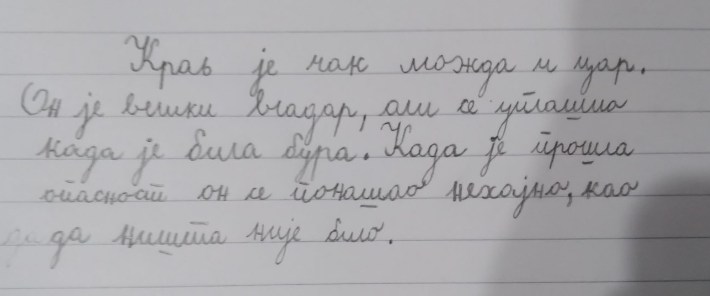 Краљ је чак можда и цар.
Он је велики владар, али се уплашио
када је била бура. Када је прошла
опасност он се понашао нехајно, као
да да ништа није било.